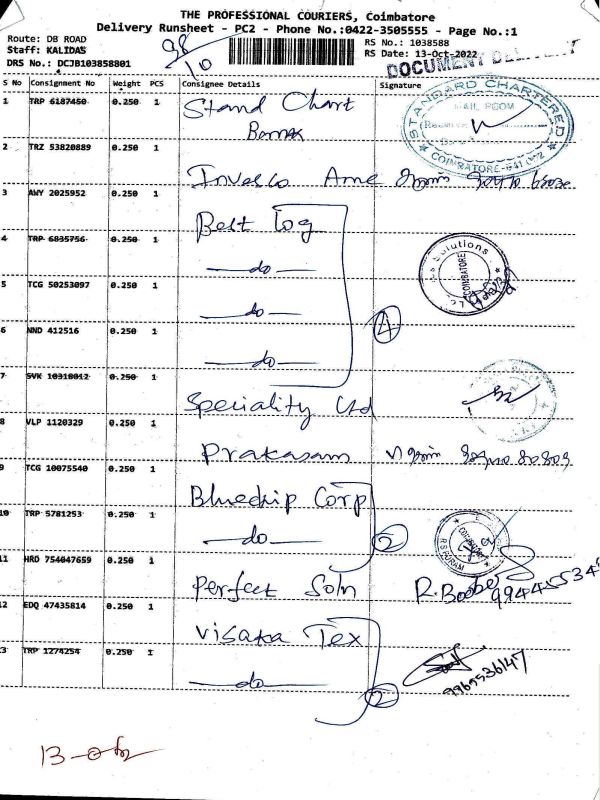 THE PROFESSIONAL COURIERS, Coimbatore
Delivery Runsheet - PC2 - Phone No.:0422-3505555 - Page No.:1
Route: DB ROAD
Staff: KALIDAS
DRS No.: DCJB103858801
98/10
RS No.: 1038588
RS Date: 13-Oct-2022
DOCUMENT
S No Consignment No Weight PCS Consignee Details Signature
1 TRP 6187450 0.250 1 Stand Chart
Bank
STANDARD CHARTERED
MAIL ROOM
COIMBATORE
2 TRZ 53820889 0.250 1 Invesco Ame
3 AWY 2025952 0.250 1 Best Log
4 TRP 6835756 0.250 1 do
5 TCG 50253097 0.250 1 do
Solutions
COIMBATORE
6 NND 412516 0.250 1 do
4
7 SVK 10318012 0.250 1 Speciality Ltd
8 VLP 1120329 0.250 1 Prakasam
9 TCG 10075540 0.250 1 Bluechip Corp
10 TRP 5781253 0.250 1 do
2
R S PURAM
11 HRD 754047659 0.250 1 Perfect Soln
12 EDQ 47435814 0.250 1 Visaka Tex
13 TRP 1274254 0.250 1 do
2
9965536147
13